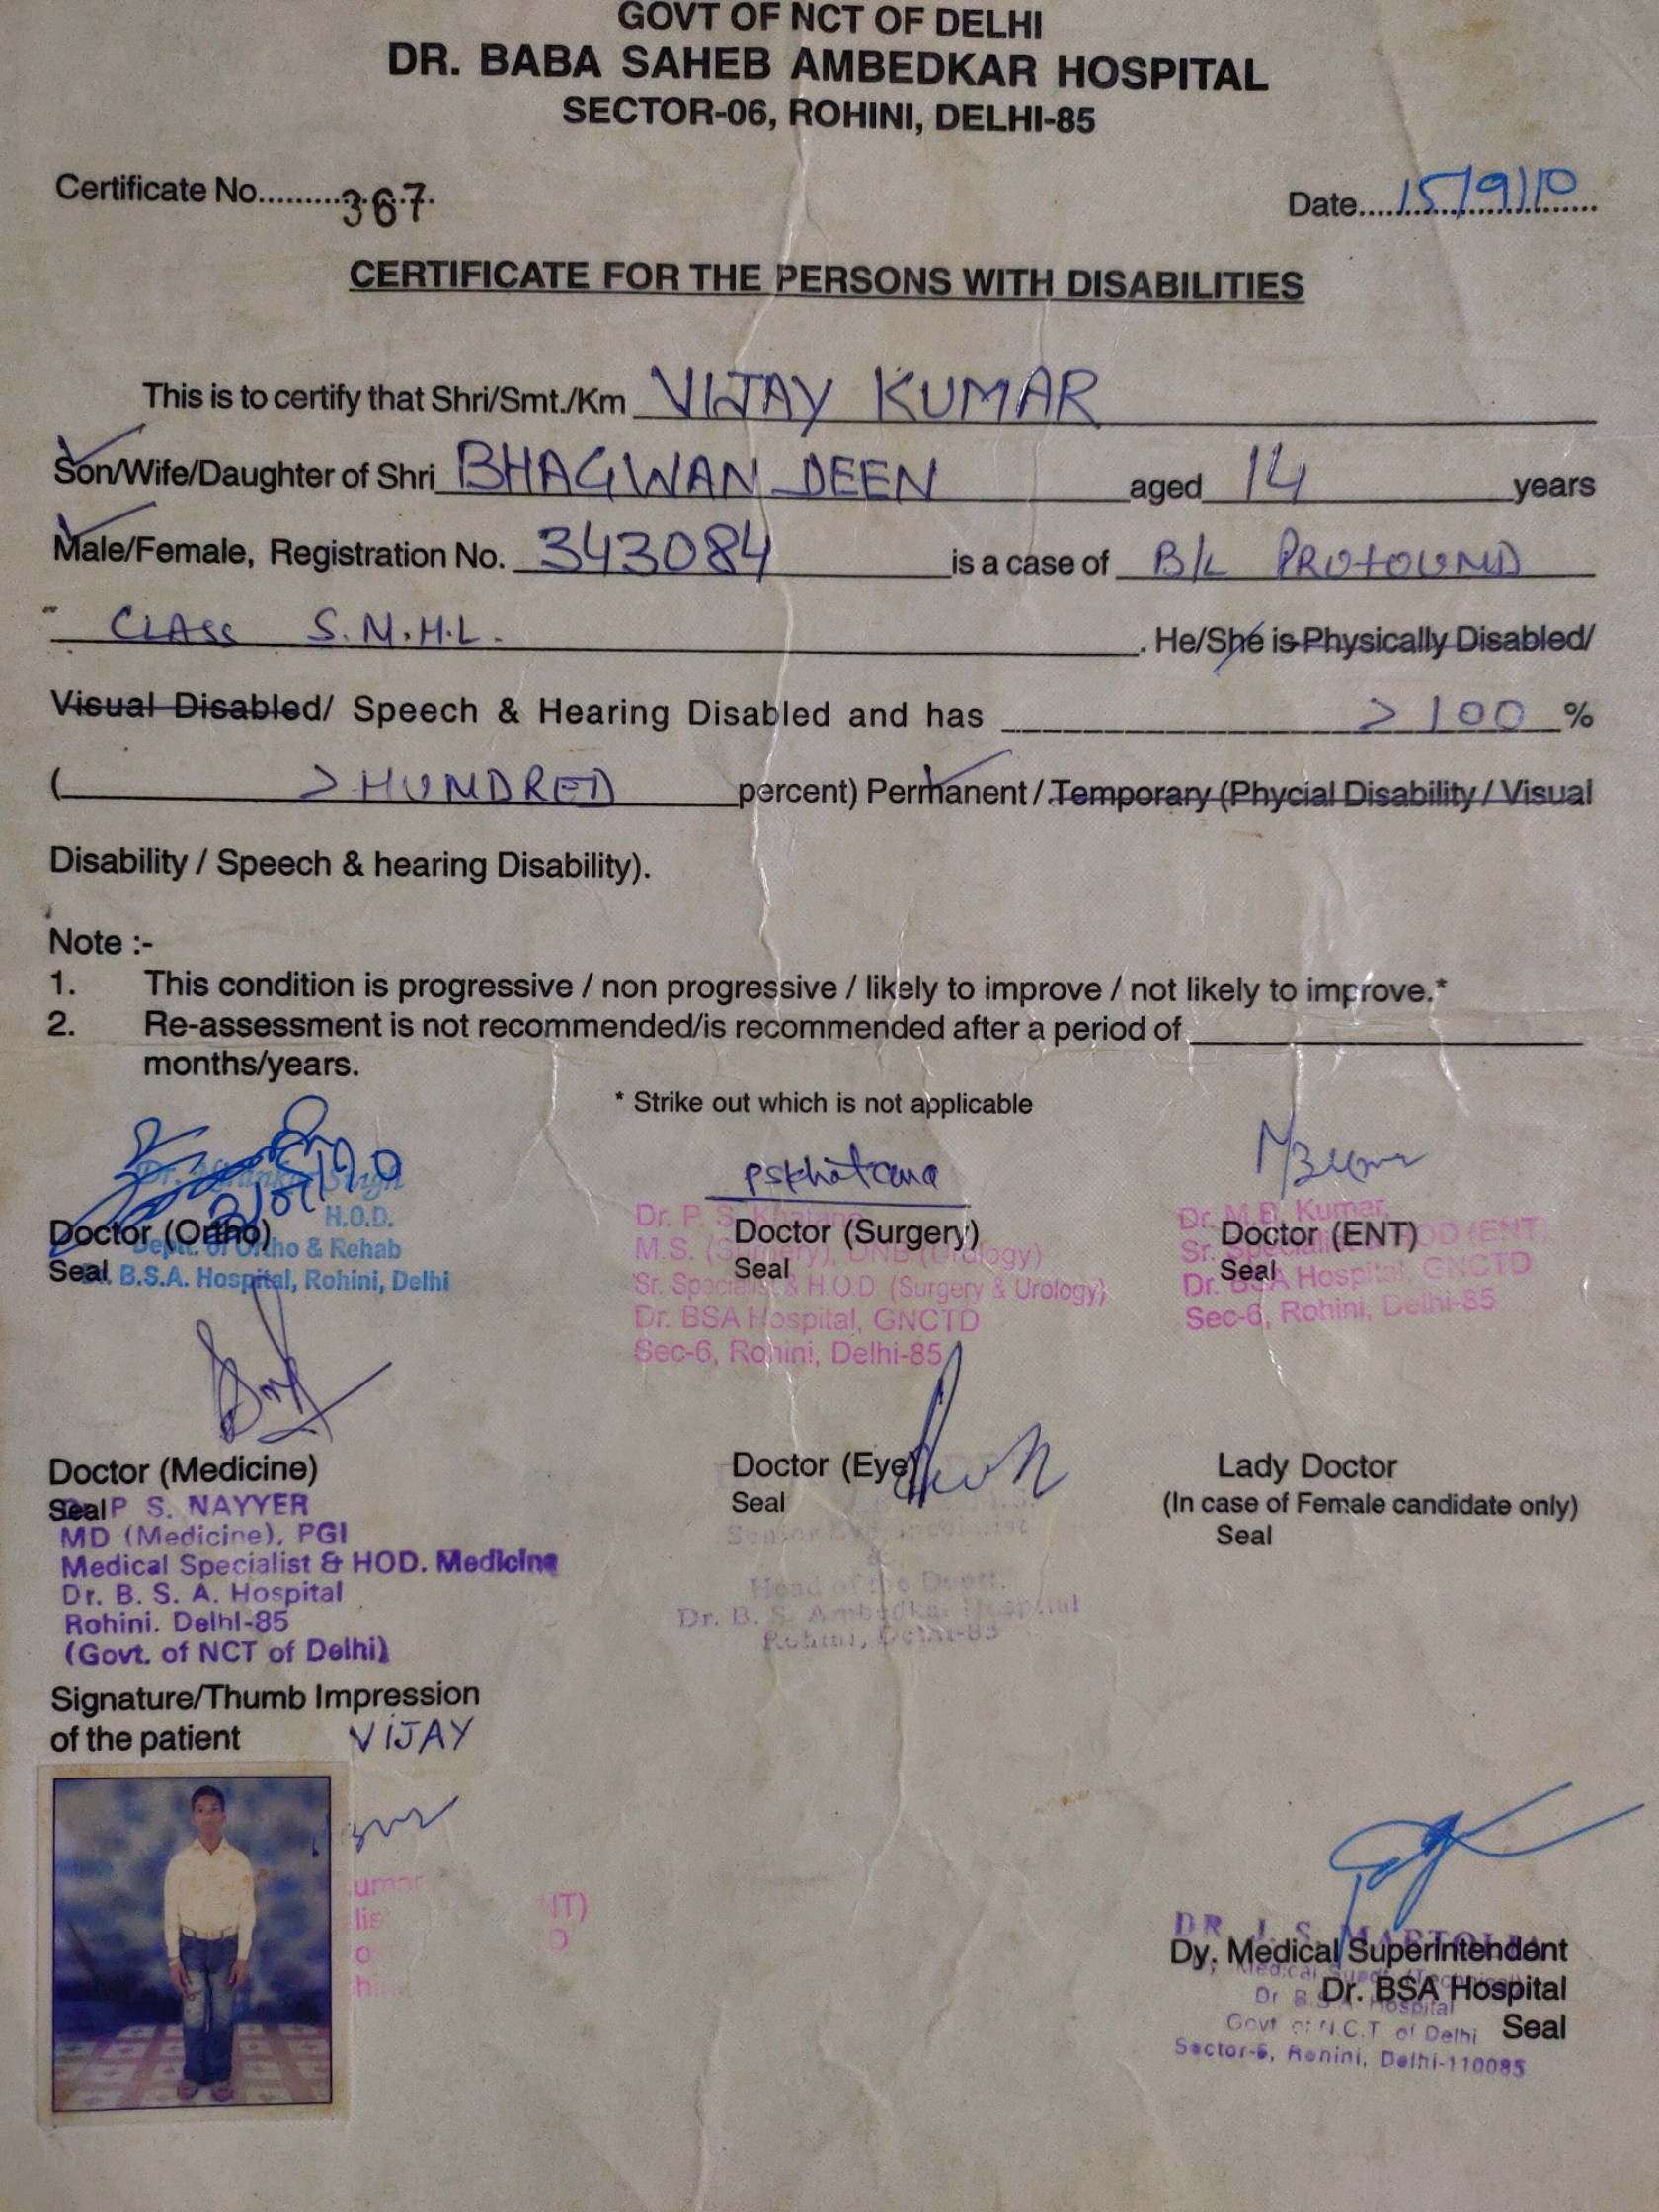 GOVT OF NCT OF DELHI
DR. BABA SAHEB AMBEDKAR HOSPITAL
SECTOR-06, ROHINI, DELHI-85
Certificate No.......... 367 Date.... 15/9/10
CERTIFICATE FOR THE PERSONS WITH DISABILITIES
This is to certify that Shri/Smt./Km VIJAY KUMAR
Son/Wife/Daughter of Shri BHAGWAN DEEN aged 14 years
Male/Female, Registration No. 343084 is a case of B/L PROFOUND
CLASS S.N.H.L. . He/She is Physically Disabled/
Visual Disabled/ Speech & Hearing Disabled and has > 100 %
( > HUNDRED percent) Permanent / Temporary (Phycial Disability / Visual
Disability / Speech & hearing Disability).
Note :-
1. This condition is progressive / non progressive / likely to improve / not likely to improve.*
2. Re-assessment is not recommended/is recommended after a period of
months/years.
* Strike out which is not applicable
pskhatana
Doctor (Ortho)
Seal
Singh
H.O.D.
Deptt. of Ortho & Rehab
B.S.A. Hospital, Rohini, Delhi
Doctor (Surgery)
Seal
Dr. P. S. Khatana
M.S. (Surgery), DNB (Urology)
Sr. Specialist & H.O.D (Surgery & Urology)
Dr. BSA Hospital, GNCTD
Sec-6, Rohini, Delhi-85
Doctor (ENT)
Seal
Dr. M.B. Kumar,
Sr. Specialist HOD (ENT)
Dr. BSA Hospital, GNCTD
Sec-6, Rohini, Delhi-85
Doctor (Medicine)
Seal
P S. NAYYER
MD (Medicine), PGI
Medical Specialist & HOD. Medicine
Dr. B. S. A. Hospital
Rohini. Delhi-85
(Govt. of NCT of Delhi)
Doctor (Eye)
Seal
Senior Eye
Head of the Deptt.
Dr. B. S. Ambedkar Hospital
Rohini, Delhi-85
Lady Doctor
(In case of Female candidate only)
Seal
Signature/Thumb Impression
of the patient VIJAY
DR. J. S.
Dy. Medical Superintendent
Dr. BSA Hospital
Seal
Dy. Medical Supdt. (Technical)
Dr B.S.A. Hospital
Govt of N.C.T of Delhi
Sector-6, Rohini, Delhi-110085